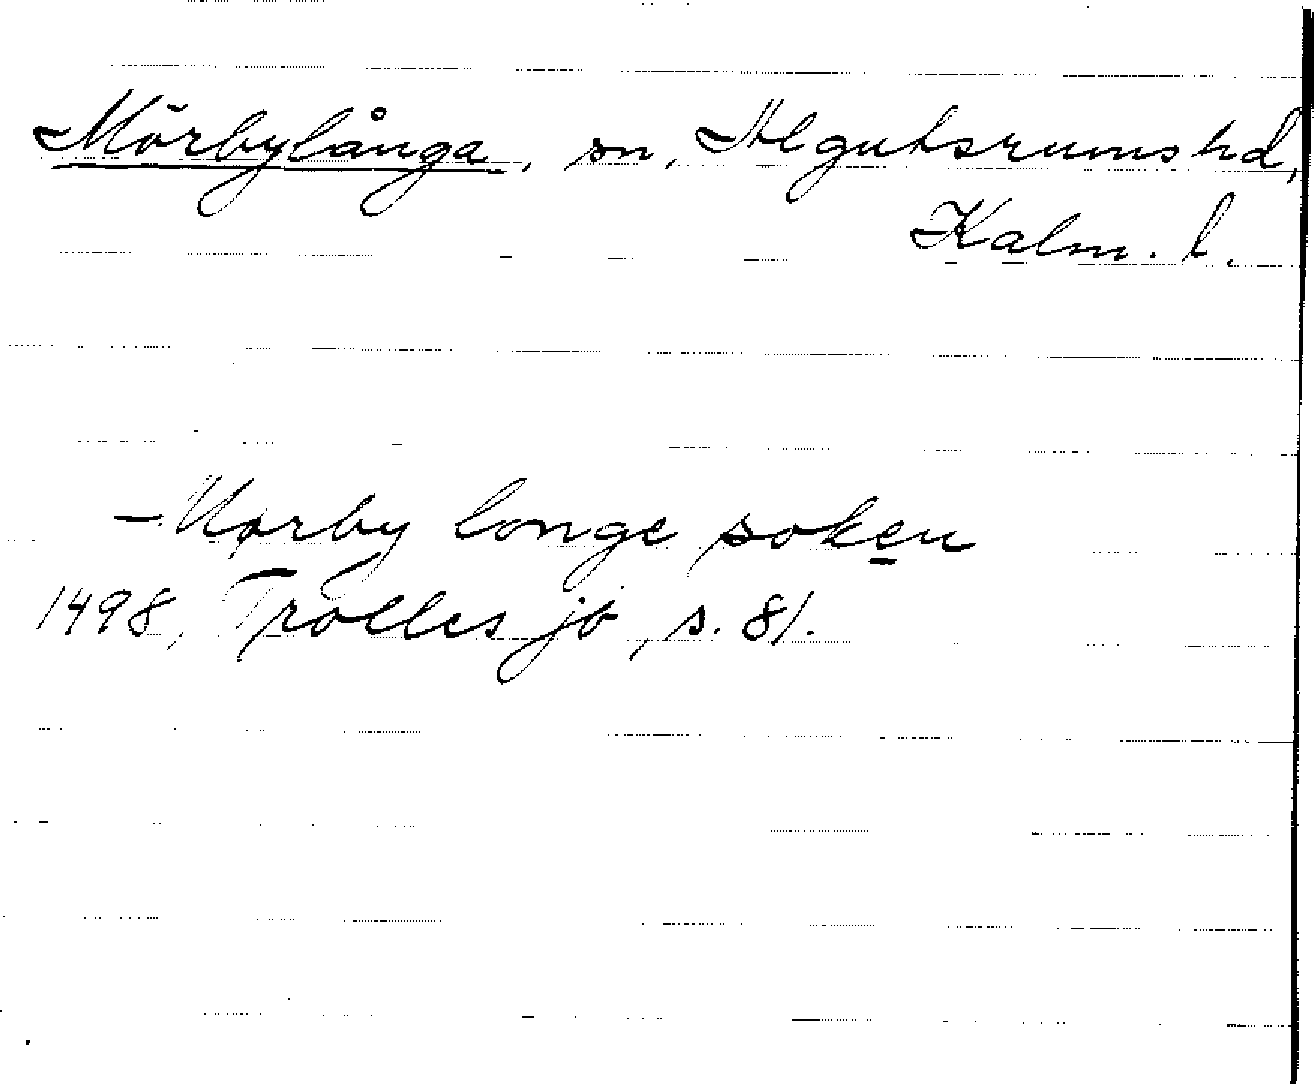 Mörbylånga, sn, Algutsrums hd,
Kalm. l.
Mørby longe soken
1498, Trolles jb, s. 81.